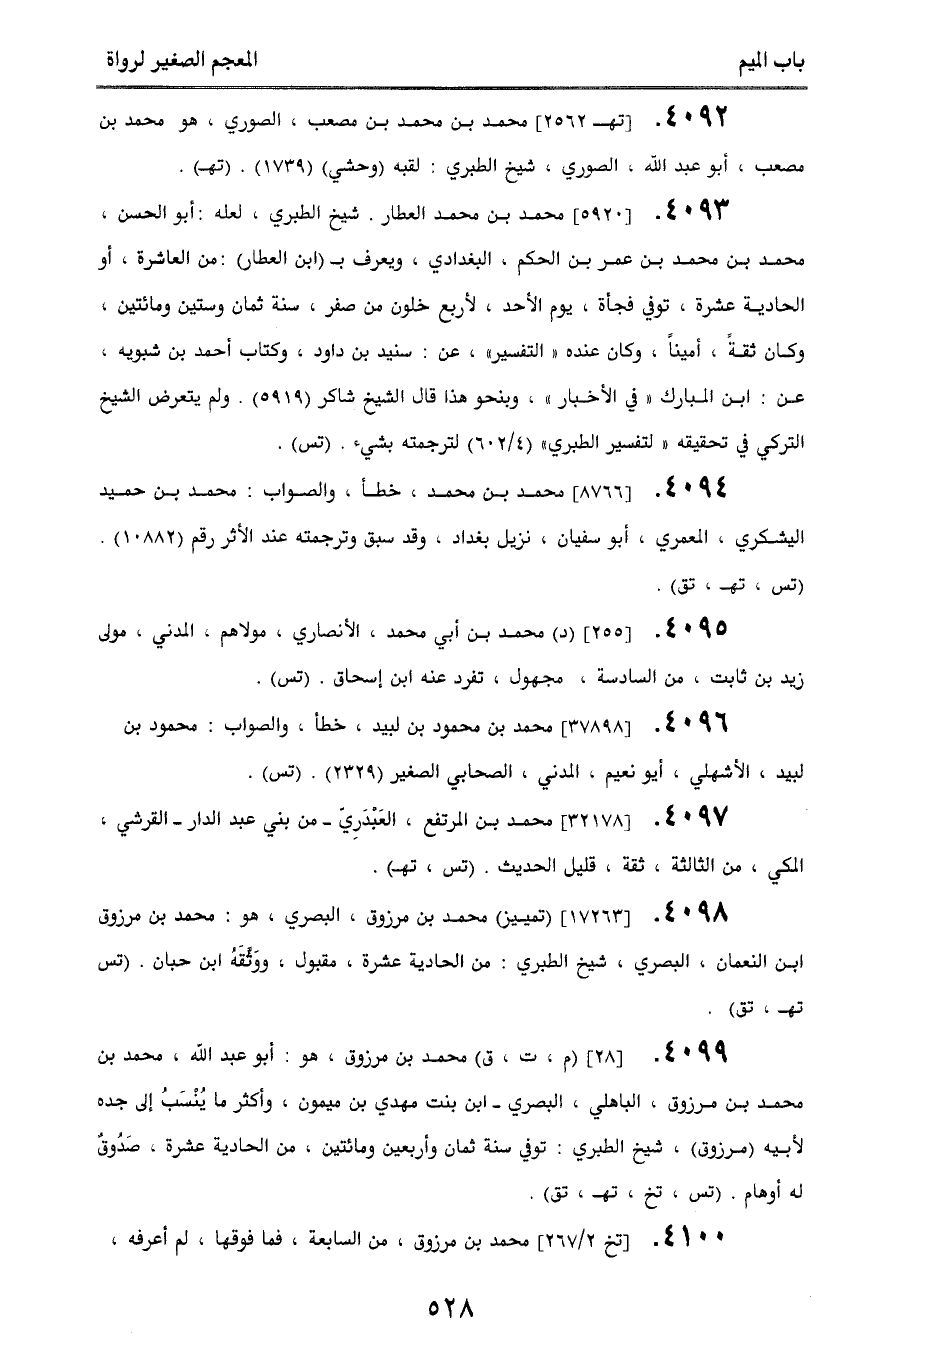 باب الميم
المعجم الصغير لرواة
٤٠٩٢. [تهـ ٢٥٦٢] محمد بن محمد بن مصعب ، الصوري ، هو محمد بن
مصعب ، أبو عبد الله ، الصوري ، شيخ الطبري : لقبه (وحشي) (١٧٣٩) . (تهـ) .
٤٠٩٣. [٥٩٢٠] محمد بن محمد العطار . شيخ الطبري ، لعله :أبو الحسن ،
محمد بن محمد بن عمر بن الحكم ، البغدادي ، ويعرف بـ (ابن العطار) :من العاشرة ، أو
الحادية عشرة ، توفي فجأة ، يوم الأحد ، لأربع خلون من صفر ، سنة ثمان وستين ومائتين ،
وكان ثقةً ، أميناً ، وكان عنده « التفسير» ، عن : سنيد بن داود ، وكتاب أحمد بن شبويه ،
عن : ابن المبارك « في الأخبار » ، وبنحو هذا قال الشيخ شاكر (٥٩١٩) . ولم يتعرض الشيخ
التركي في تحقيقه « لتفسير الطبري» (٦٠٢/٤) لترجمته بشيء . (تس) .
٤٠٩٤. [٨٧٦٦] محمد بن محمد ، خطأ ، والصواب : محمد بن حميد
اليشكري ، المعمري ، أبو سفيان ، نزيل بغداد ، وقد سبق وترجمته عند الأثر رقم (١٠٨٨٢) .
(تس ، تهـ ، تق) .
٤٠٩٥. [٢٥٥] (د) محمد بن أبي محمد ، الأنصاري ، مولاهم ، المدني ، مولى
زيد بن ثابت ، من السادسة ، مجهول ، تفرد عنه ابن إسحاق . (تس) .
٤٠٩٦. [٣٧٨٩٨] محمد بن محمود بن لبيد ، خطأ ، والصواب : محمود بن
لبيد ، الأشهلي ، أيو نعيم ، المدني ، الصحابي الصغير (٢٣٢٩) . (تس) .
٤٠٩٧. [٣٢١٧٨] محمد بن المرتفع ، العَبْدَرِيّ ـ من بني عبد الدار ـ القرشي ،
المكي ، من الثالثة ، ثقة ، قليل الحديث . (تس ، تهـ) .
٤٠٩٨. [١٧٢٦٣] (تمييز) محمد بن مرزوق ، البصري ، هو : محمد بن مرزوق
ابن النعمان ، البصري ، شيخ الطبري : من الحادية عشرة ، مقبول ، ووَثَّقَهُ ابن حبان . (تس
تهـ ، تق) .
٤٠٩٩. [٢٨] (م ، ت ، ق) محمد بن مرزوق ، هو : أبو عبد الله ، محمد بن
محمد بن مرزوق ، الباهلي ، البصري ـ ابن بنت مهدي بن ميمون ، وأكثر ما يُنْسَبُ إلى جده
لأبيه (مرزوق) ، شيخ الطبري : توفي سنة ثمان وأربعين ومائتين ، من الحادية عشرة ، صَدُوقٌ
له أوهام . (تس ، تخ ، تهـ ، تق) .
٤١٠٠. [تخ ٢٦٧/٢] محمد بن مرزوق ، من السابعة ، فما فوقها ، لم أعرفه ،
٥٢٨